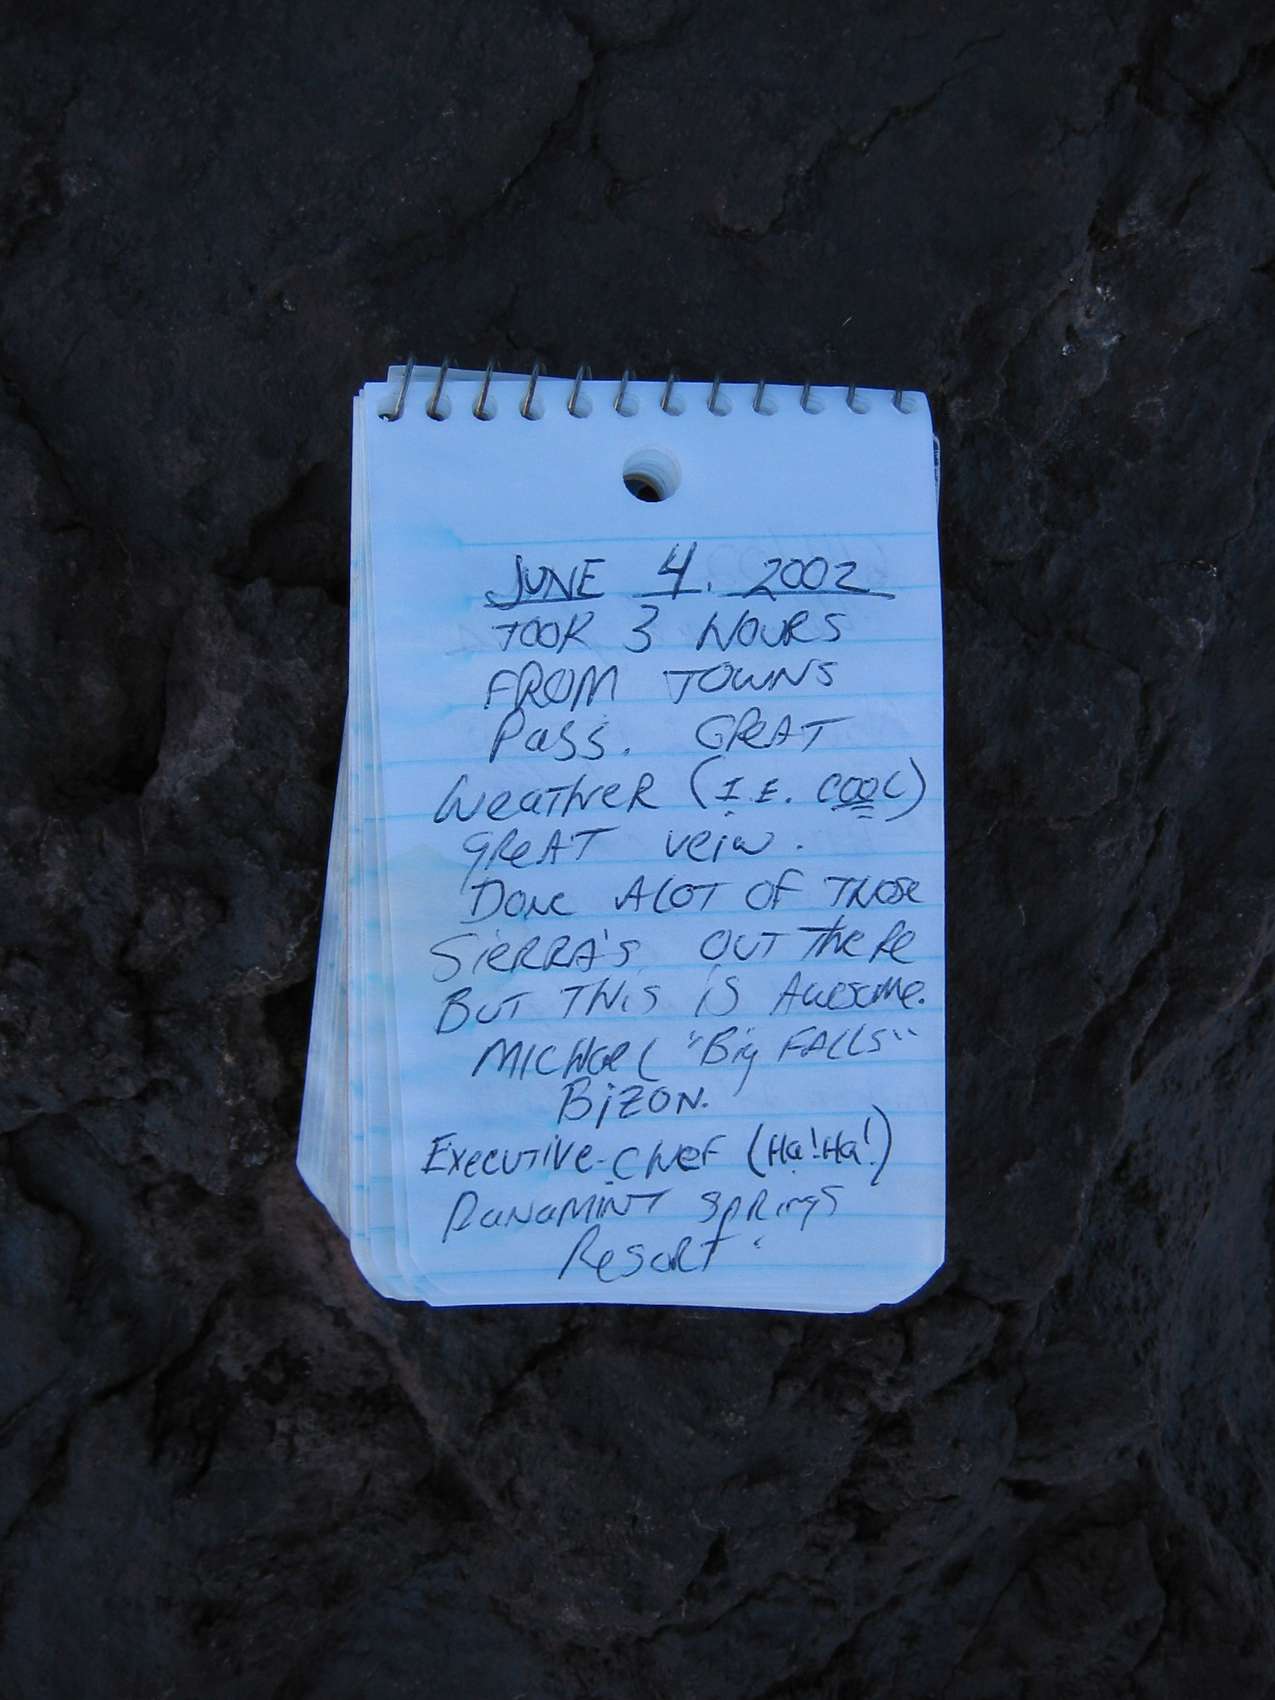 JUNE 4, 2002
TOOK 3 HOURS
FROM TOWNS
PASS. GREAT
WEATHER (I.E. COOL)
GREAT VEIW.
DONE ALOT OF THOSE
SIERRA'S OUT THERE
BUT THIS IS AWESOME.
MICHAEL "BIG FALLS"
BIZON.
EXECUTIVE-CHEF (HA! HA!)
PANAMINT SPRINGS
RESORT.